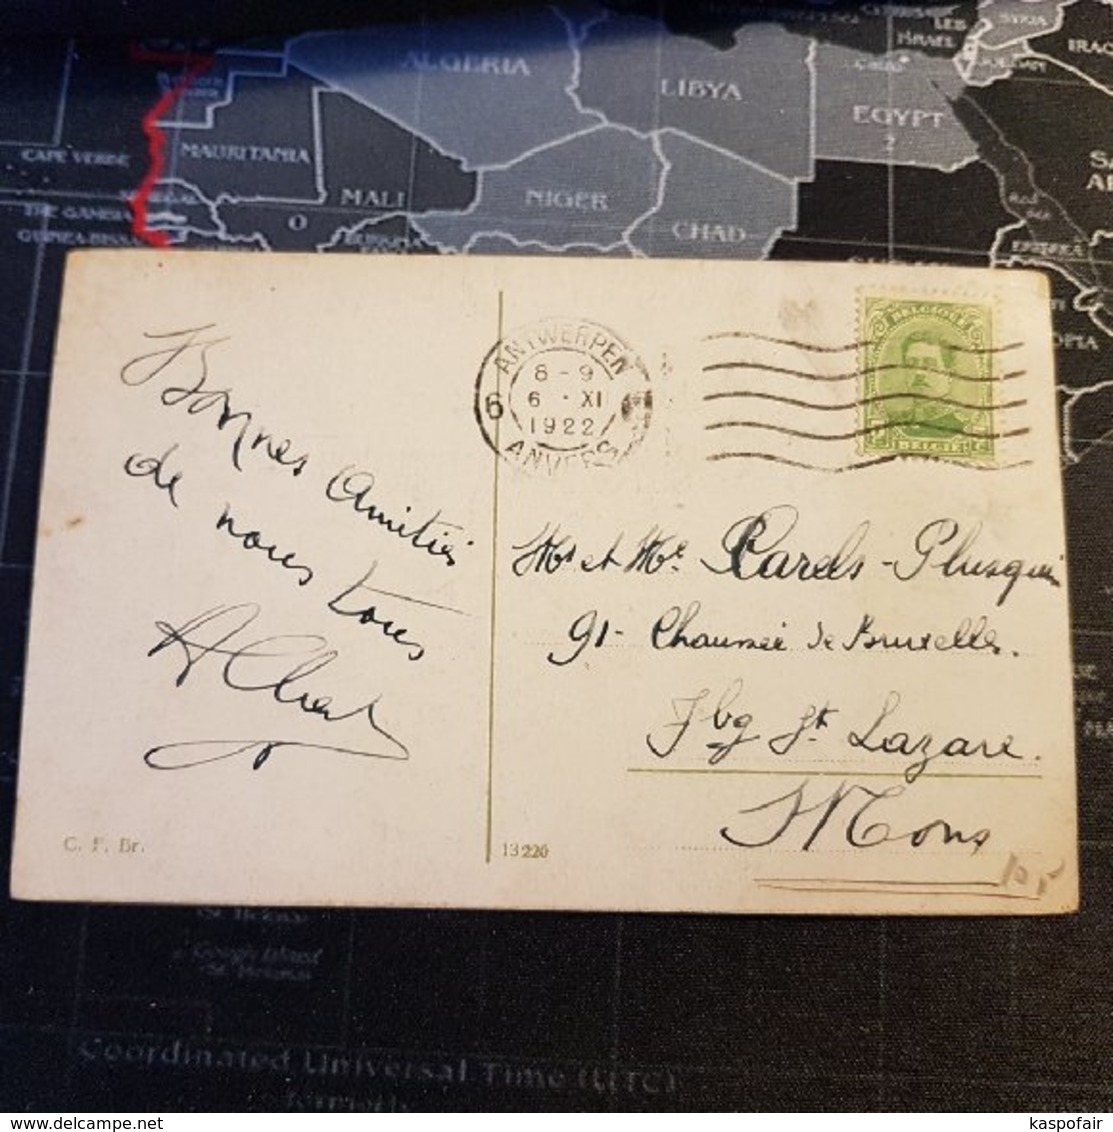 ALGERIA
LIBYA
EGYPT
SYRIA
ISRAEL
CAPE VERDE
MAURITANIA
MALI
NIGER
CHAD
THE GAMBIA
Bonnes Amitiés
de nous tous
Albert
C. F. Br.
13220
ANTWERPEN
8 - 9
6 · XI
1922
6
ANVERS
BELGIQUE
BELGIE
Mr et Me Carels - Plusquin
91 - Chaussée de Bruxelles.
Fbg St Lazare.
Mons
Coordinated Universal Time (UTC)
kaspofair